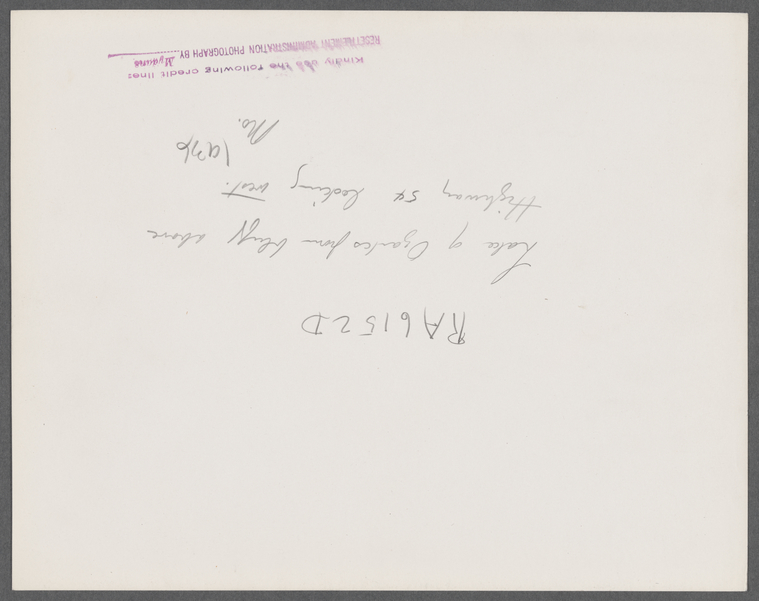 RA 6152 D
Lake of Ozarks from bluff above
Highway 54 looking west.
1936
Mo.
Kindly use the following credit line:
RESETTLEMENT ADMINISTRATION PHOTOGRAPH BY Mydans